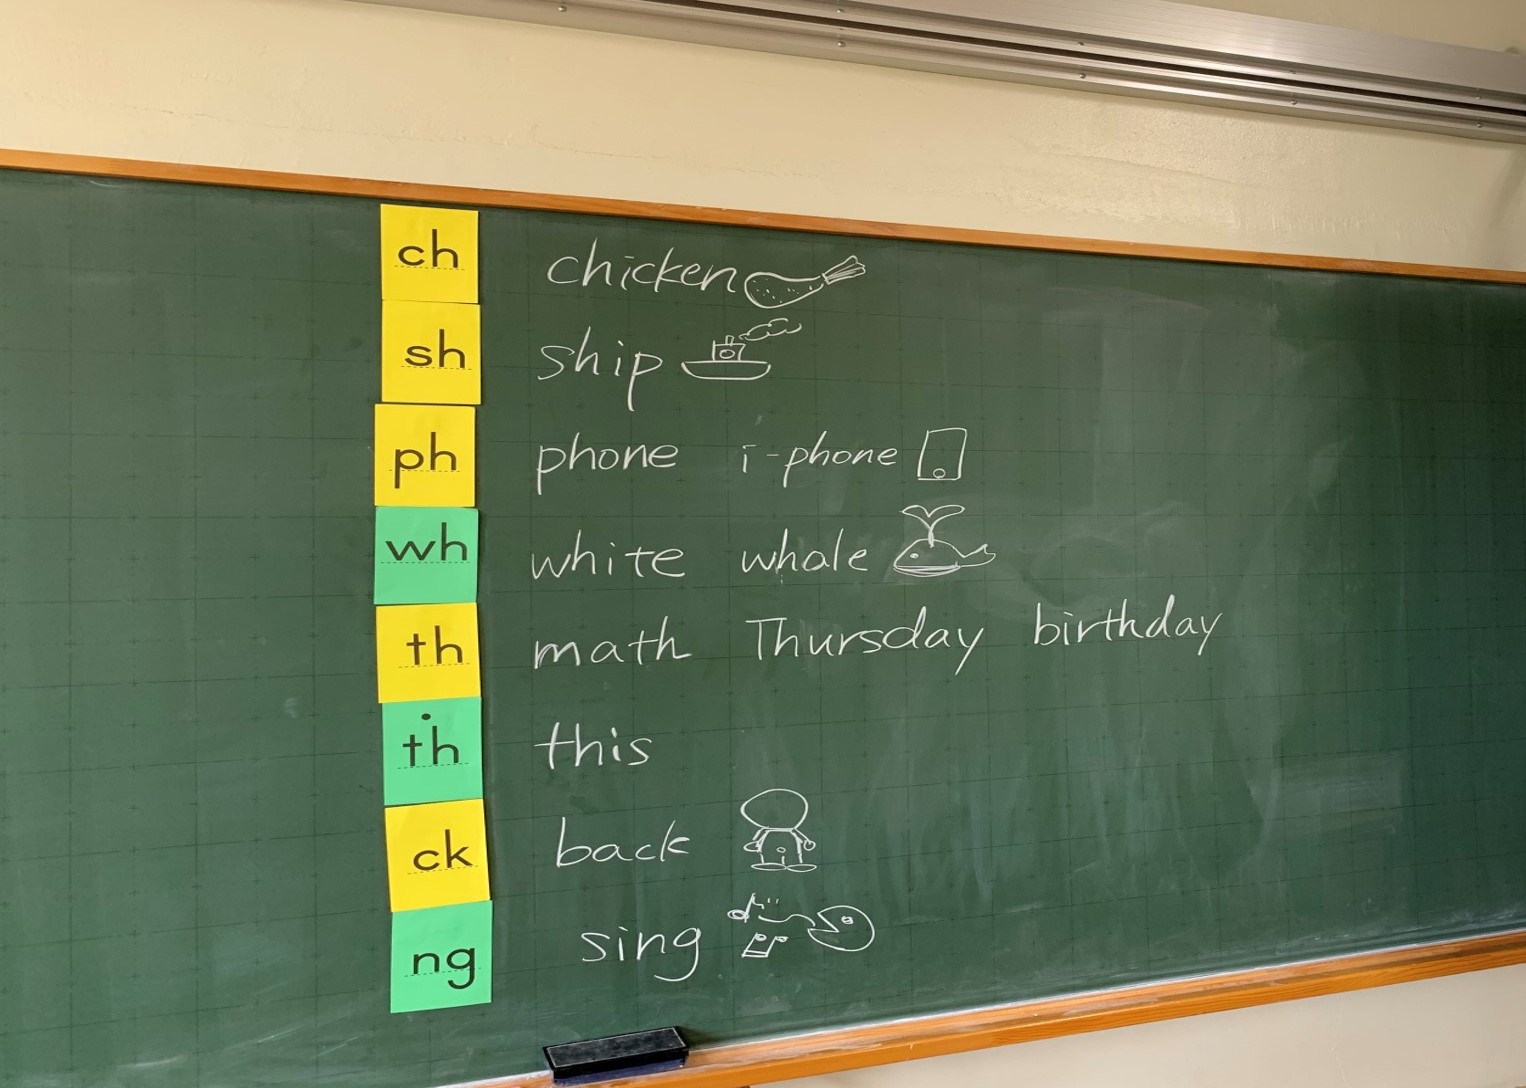 ch chicken
sh ship
ph phone i-phone
wh white whale
th math Thursday birthday
ṫh this
ck back
ng sing